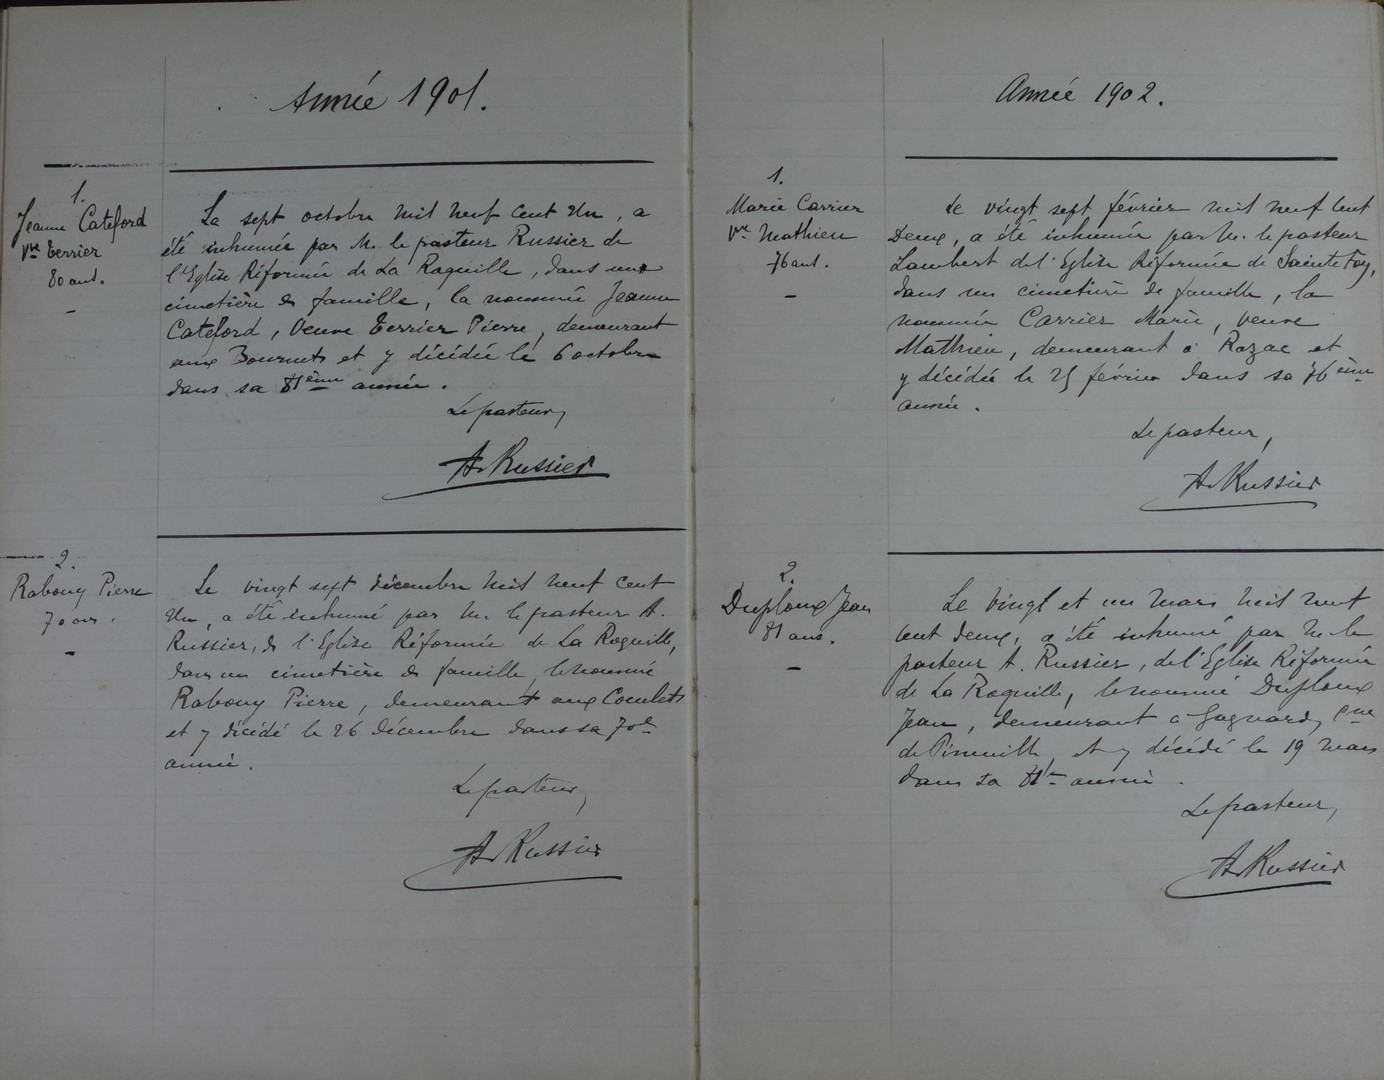 Année 1901.
1.
Jeanne Cateford
Vve Terrier
80 ans.
Le sept octobre mil neuf cent un, a
été inhumée par M. le pasteur Russier de
l'Eglise Réformée de La Roquille, dans un
cimetière de famille, la nommée Jeanne
Cateford, Veuve Terrier Pierre, demeurant
aux Bournets et y décédée le 6 octobre
dans sa 81ème année.
Le pasteur,
A. Russier
2.
Rabouy Pierre
70 ans.
Le vingt sept décembre mil neuf cent
un, a été inhumé par M. le pasteur A.
Russier, de l'Eglise Réformée de La Roquille,
dans un cimetière de famille, le nommé
Rabouy Pierre, demeurant aux Coulets
et y décédé le 26 décembre dans sa 70e
année.
Le pasteur,
A. Russier
Année 1902.
1.
Marie Carrier
Vve Mathieu
76 ans.
Le vingt sept février mil neuf cent
Deux, a été inhumée par M. le pasteur
Lambert de l'Eglise Réformée de Sainte Foy,
dans un cimetière de famille, la
nommée Carrier Marie, veuve
Mathieu, demeurant à Razac et
y décédée le 25 février dans sa 76ème
année.
Le pasteur,
A. Russier
2.
Duploux Jean
81 ans.
Le Vingt et un Mars mil neuf
cent deux, a été inhumé par M. le
pasteur A. Russier, de l'Eglise Réformée
de La Roquille, le nommé Duploux
Jean, demeurant à Gagnard, cne
de Pineuilh, et y décédé le 19 mars
dans sa 81me année.
Le pasteur,
A. Russier